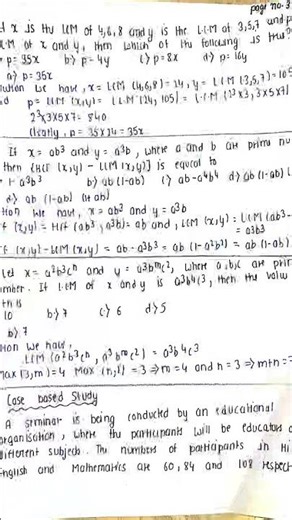 page no. 3
x is the LCM of 4,6,8 and y is the L.C.M of 3,5,7 and p
of x and y, then which of the following is true?
p= 35x b) p= 4y c) p=8x d) p= 16y
a) p= 35x
we have, x = LCM (4,6,8) = 24, y = LCM (3,5,7) = 105
p = LCM (x,y) = L.C.M (24, 105) = L.C.M (2³x3, 3x5x7)
2³x3x5x7 = 840
Clearly, p= 35x24 = 35x
If x = ab³ and y = a³b, where a and b are prime nu
then [HCF (x,y) - LCM (x,y)] is equal to
1- a³b³ b) ab (1-ab) c) ab-a⁴b⁴ d) ab (1-ab) (
d) ab (1-ab) (1+ab)
We have, x = ab³ and y = a³b
(x,y) = HCF (ab³, a³b) = ab and, LCM (x,y) = LCM (ab³
= a³b³
(x,y) - LCM (x,y) = ab - a³b³ = ab (1-a²b²) = ab (1-ab)
Let x = a²b³cⁿ and y = a³bᵐc², where a,b,c are pri
number. If LCM of x and y is a³b⁴c³, then the value
m+n is
10 b) 7 c) 6 d) 5
b) 7
We have,
LCM (a²b³cⁿ, a³bᵐc²) = a³b⁴c³
Max (3,m) = 4 Max (n,2) = 3 ⇒ m = 4 and n = 3 ⇒ m+n =
Case based Study
A seminar is being conducted by an educational
organisation, where the participants will be educators o
different subjects. The numbers of participants in Hi
English and Mathematics are 60, 84 and 108 respect